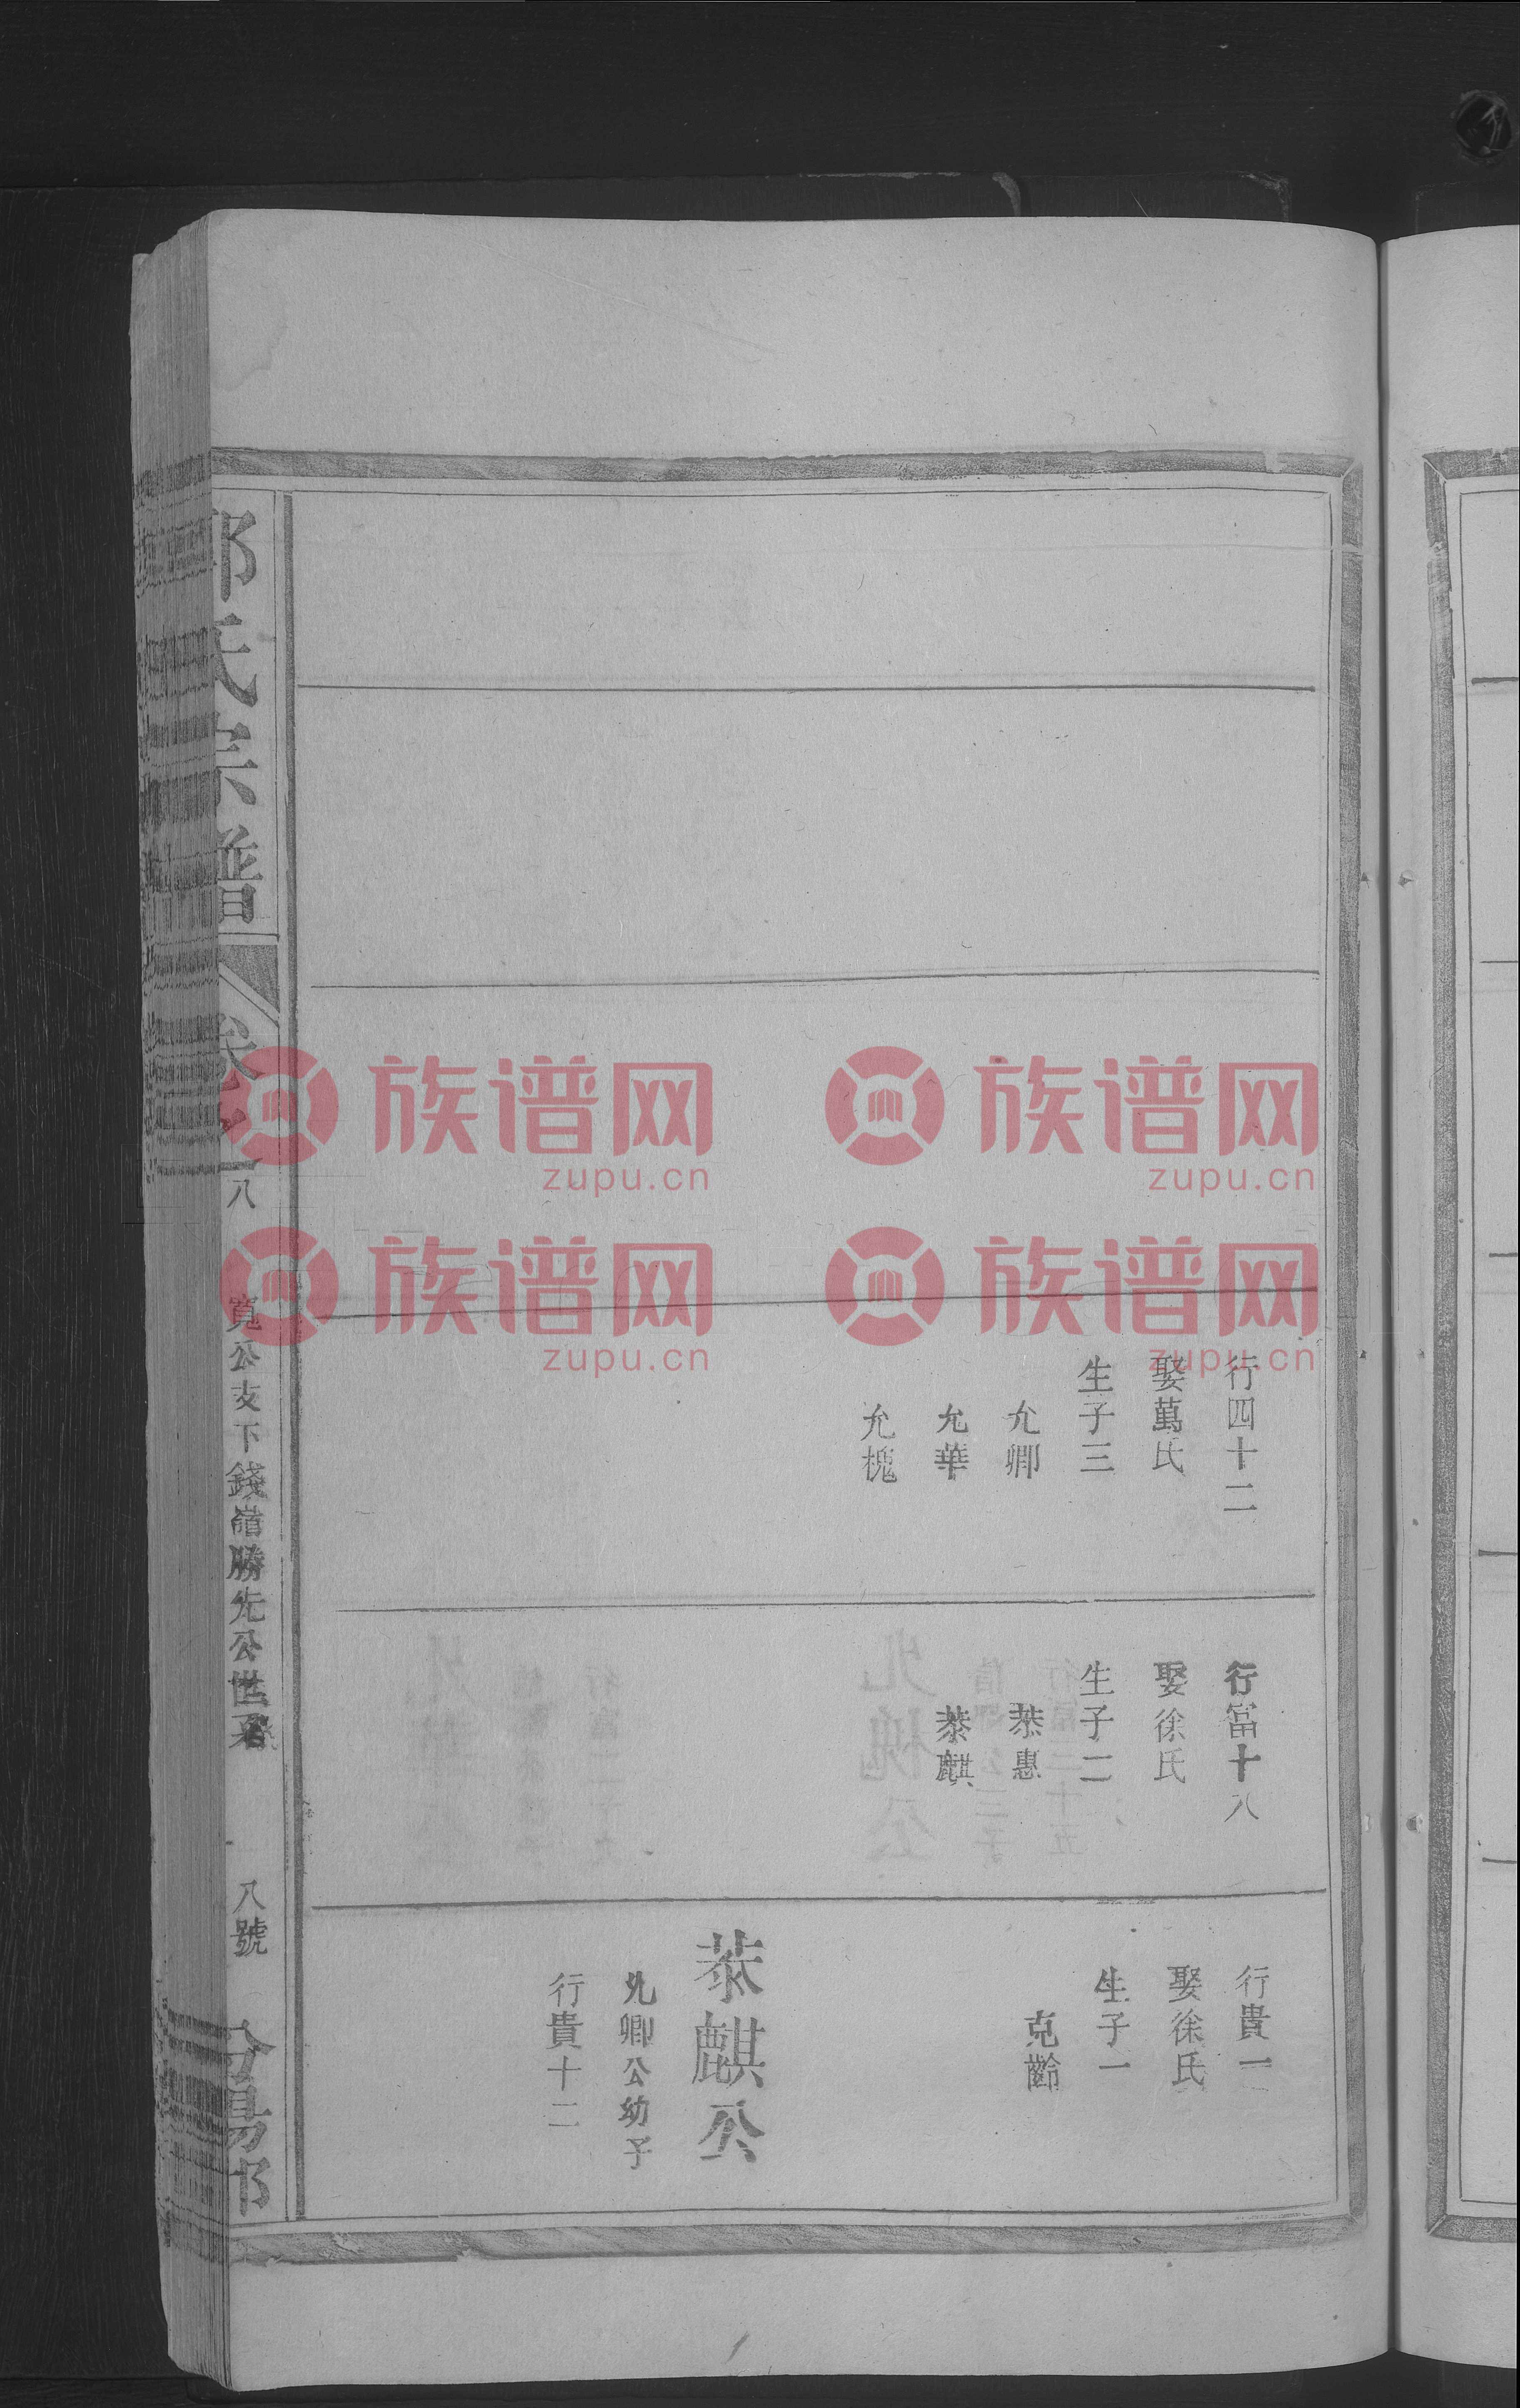 行四十二
娶萬氏
生子三
允卿
允華
允槐
行富十八
娶徐氏
生子二
恭惠
恭麒
行貴一
娶徐氏
生子一
克齡
恭麒公
允卿公幼子
行貴十二
氏宗譜
八
寬公支下錢嶺勝先公世系
八號
族谱网
zupu.cn
族谱网
zupu.cn
族谱网
zupu.cn
族谱网
zupu.cn